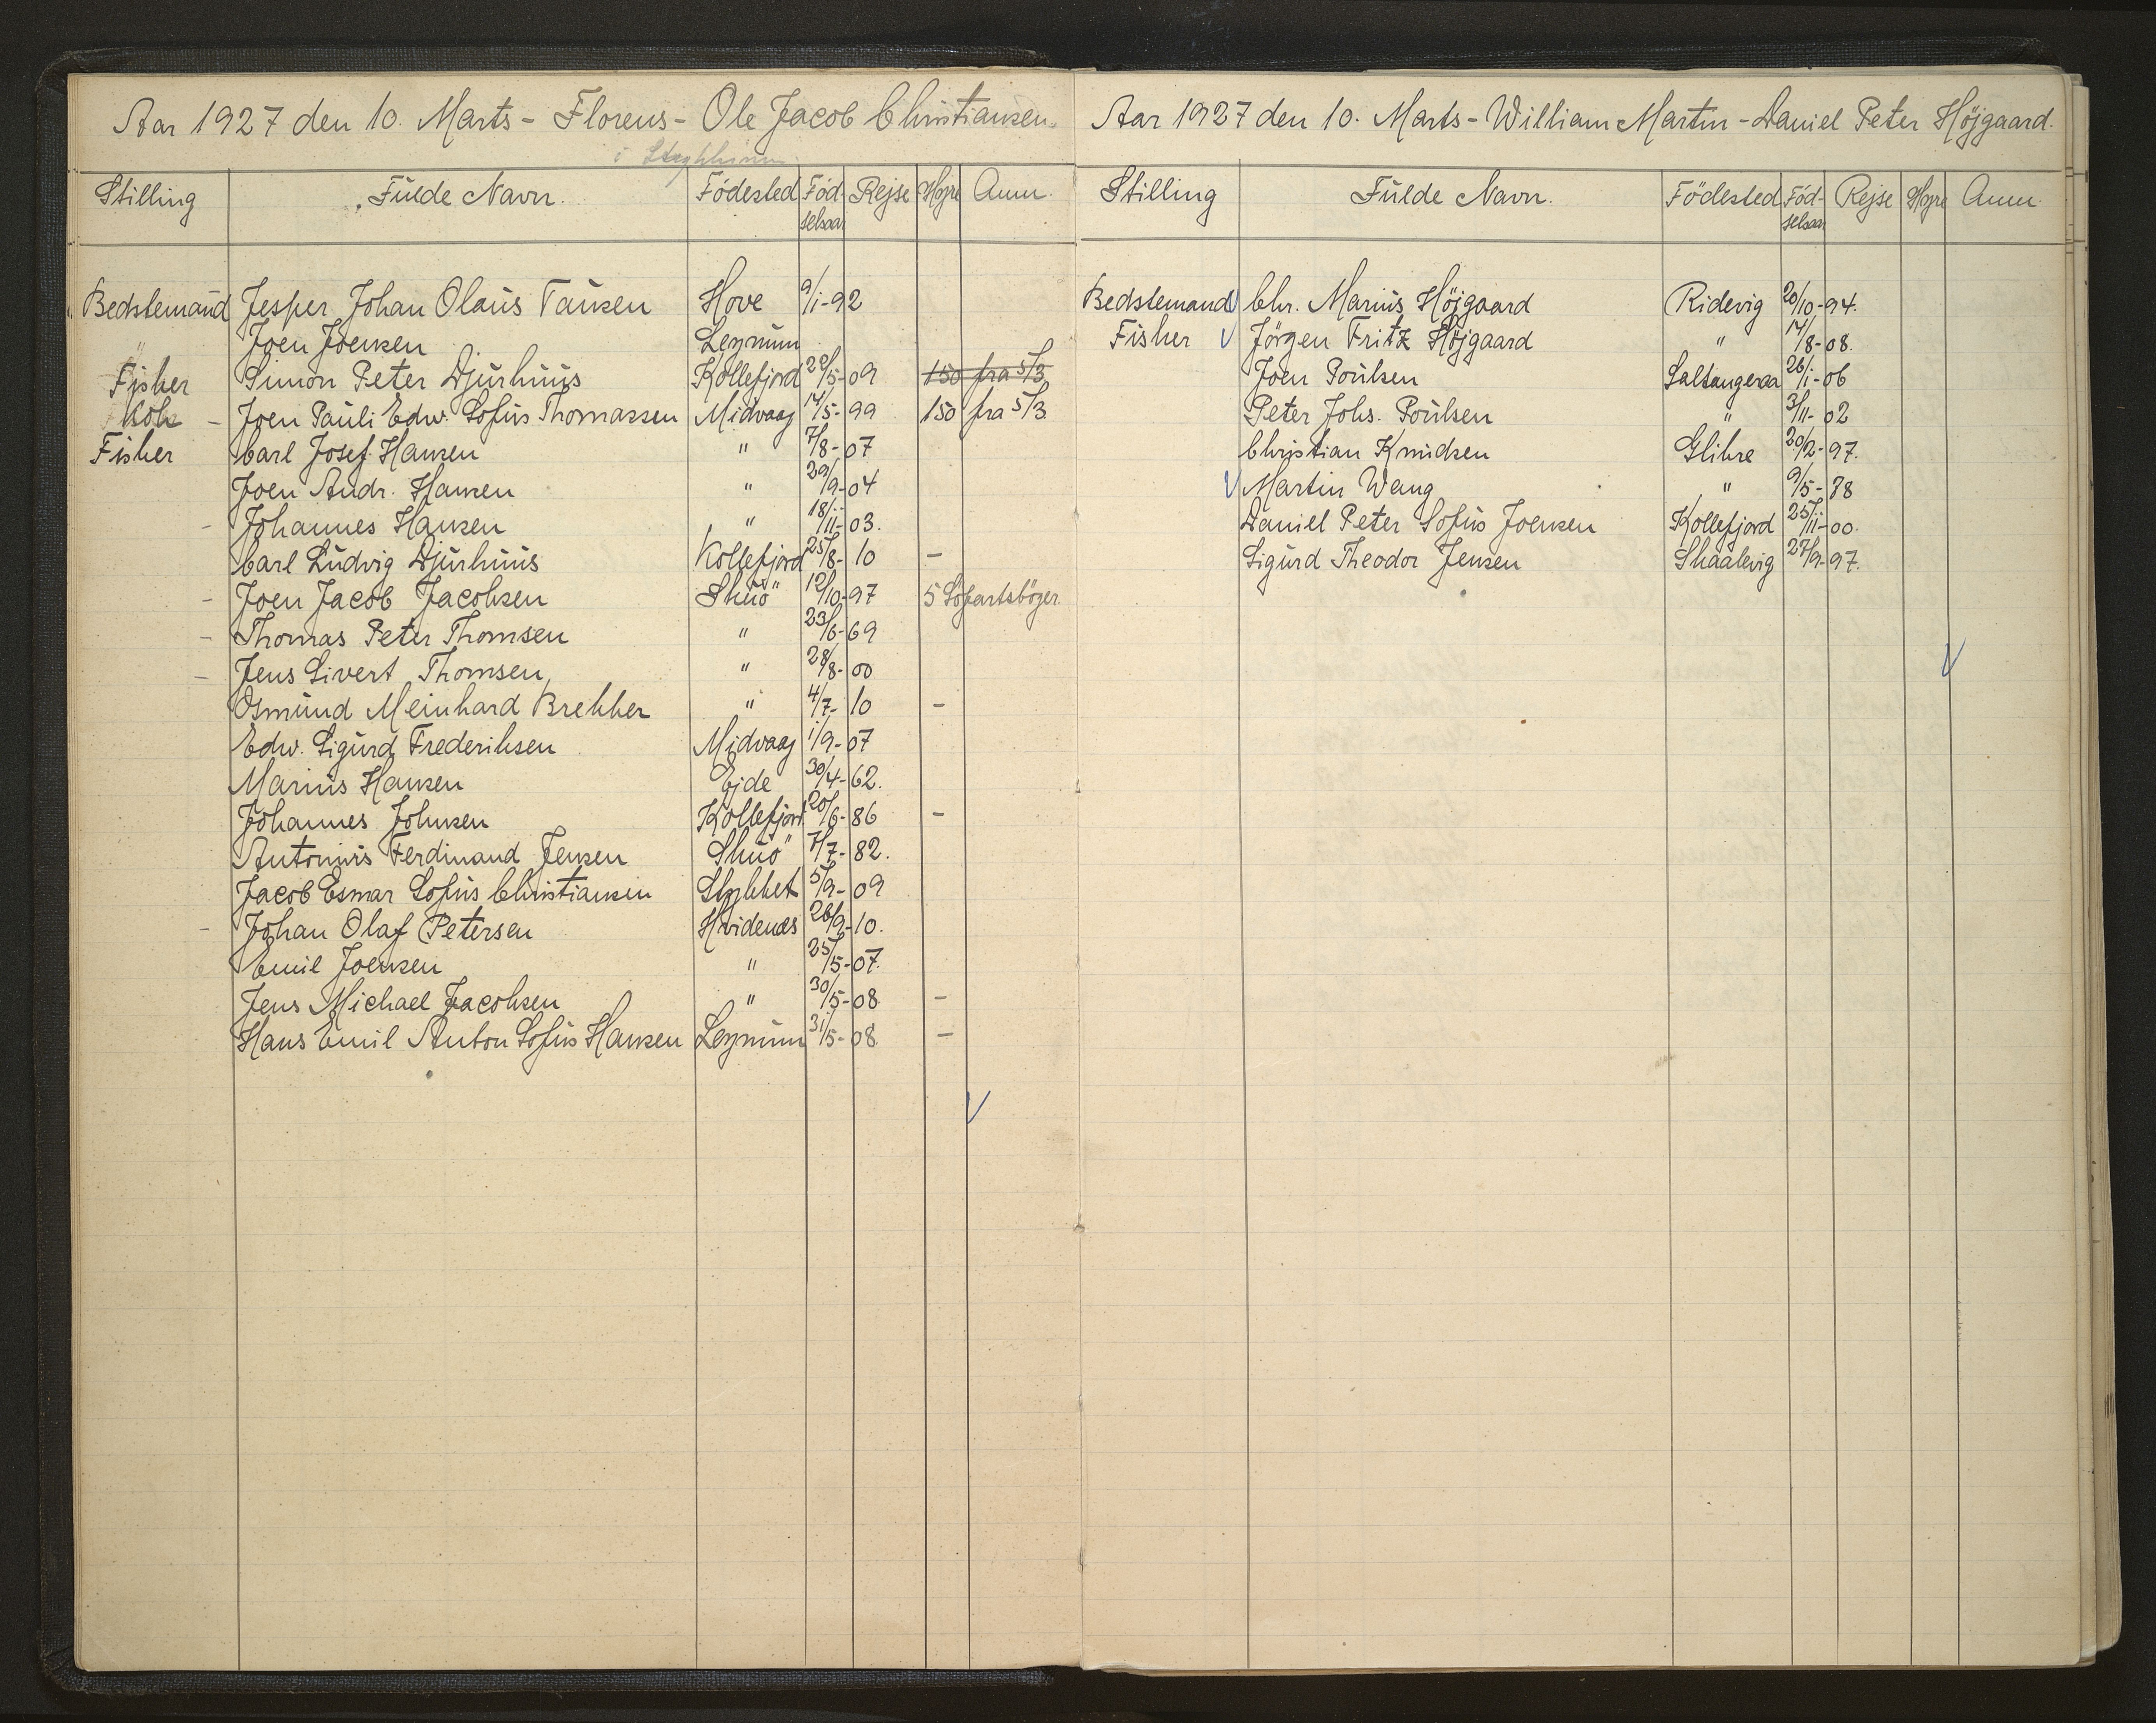 Aar 1927 den 10. Marts - Florens - Ole Jacob Christiansen.
i
Stilling Fulde Navn. Födested Fød-selsaar Rejse Hyre Anm.
Bedstemand Jesper Johan Olaus Tausen Hove 9/1-92
" Joen Joensen Leynum
Fisker Simon Peter Djurhuus Kollefjord 20/5-09 150 fra 5/3
Kok - Joen Pauli Edw. Sofus Thomassen Midvaag 14/5-99 150 fra 5/3
Fisker Carl Josef Hansen " 7/8-07
Joen Andr. Hansen " 29/9-04
- Johannes Hansen " 18/11-03.
Carl Ludvig Djurhuus Kollefjord 25/8-10 -
- Joen Jacob Jacobsen Skuö 12/10-97 5 Söfartsböger
- Thomas Peter Thomsen " 23/6-69
- Jens Sivert Thomsen " 28/8-00
Osmund Meinhard Brekker " 4/7-10 -
Edw. Sigurd Frederiksen Midvaag 1/9-07
Marius Hansen Ejde 30/4-62.
Johannes Johnsen Kollefjord 20/6-86 -
Antonius Ferdinand Jensen Skuö 7/7-82.
Jacob Esmar Sofus Christiansen Stykket 5/9-09
- Johan Olaf Petersen Hvidenæs 26/9-10.
Emil Joensen " 25/5-07.
Jens Michael Jacobsen " 30/5-08 -
Hans Emil Anton Sofus Hansen Leynum 31/5-08 -
Aar 1927 den 10. Marts - William Martin - Daniel Peter Höjgaard.
Stilling Fulde Navn. Födested Fød-selsaar Rejse Hyre Anm.
Bedstemand Chr. Marius Höjgaard Ridevig 20/10-94.
Fisker Jörgen Fritz Höjgaard " 14/8-08.
Joen Poulsen Saltangeraa 26/1-06
Peter Johs. Poulsen " 3/11-02
Christian Knudsen Glibre 20/2-97.
Martin Wang " 9/5-78
Daniel Peter Sofus Joensen Kollefjord 25/11-00.
Sigurd Theodor Jensen Skaalevig 27/9-97.